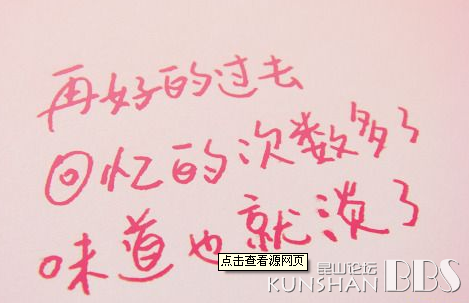 再好的过去
回忆的次数多了
味道也就淡了
点击查看源网页
昆山论坛
KUNSHAN BBS